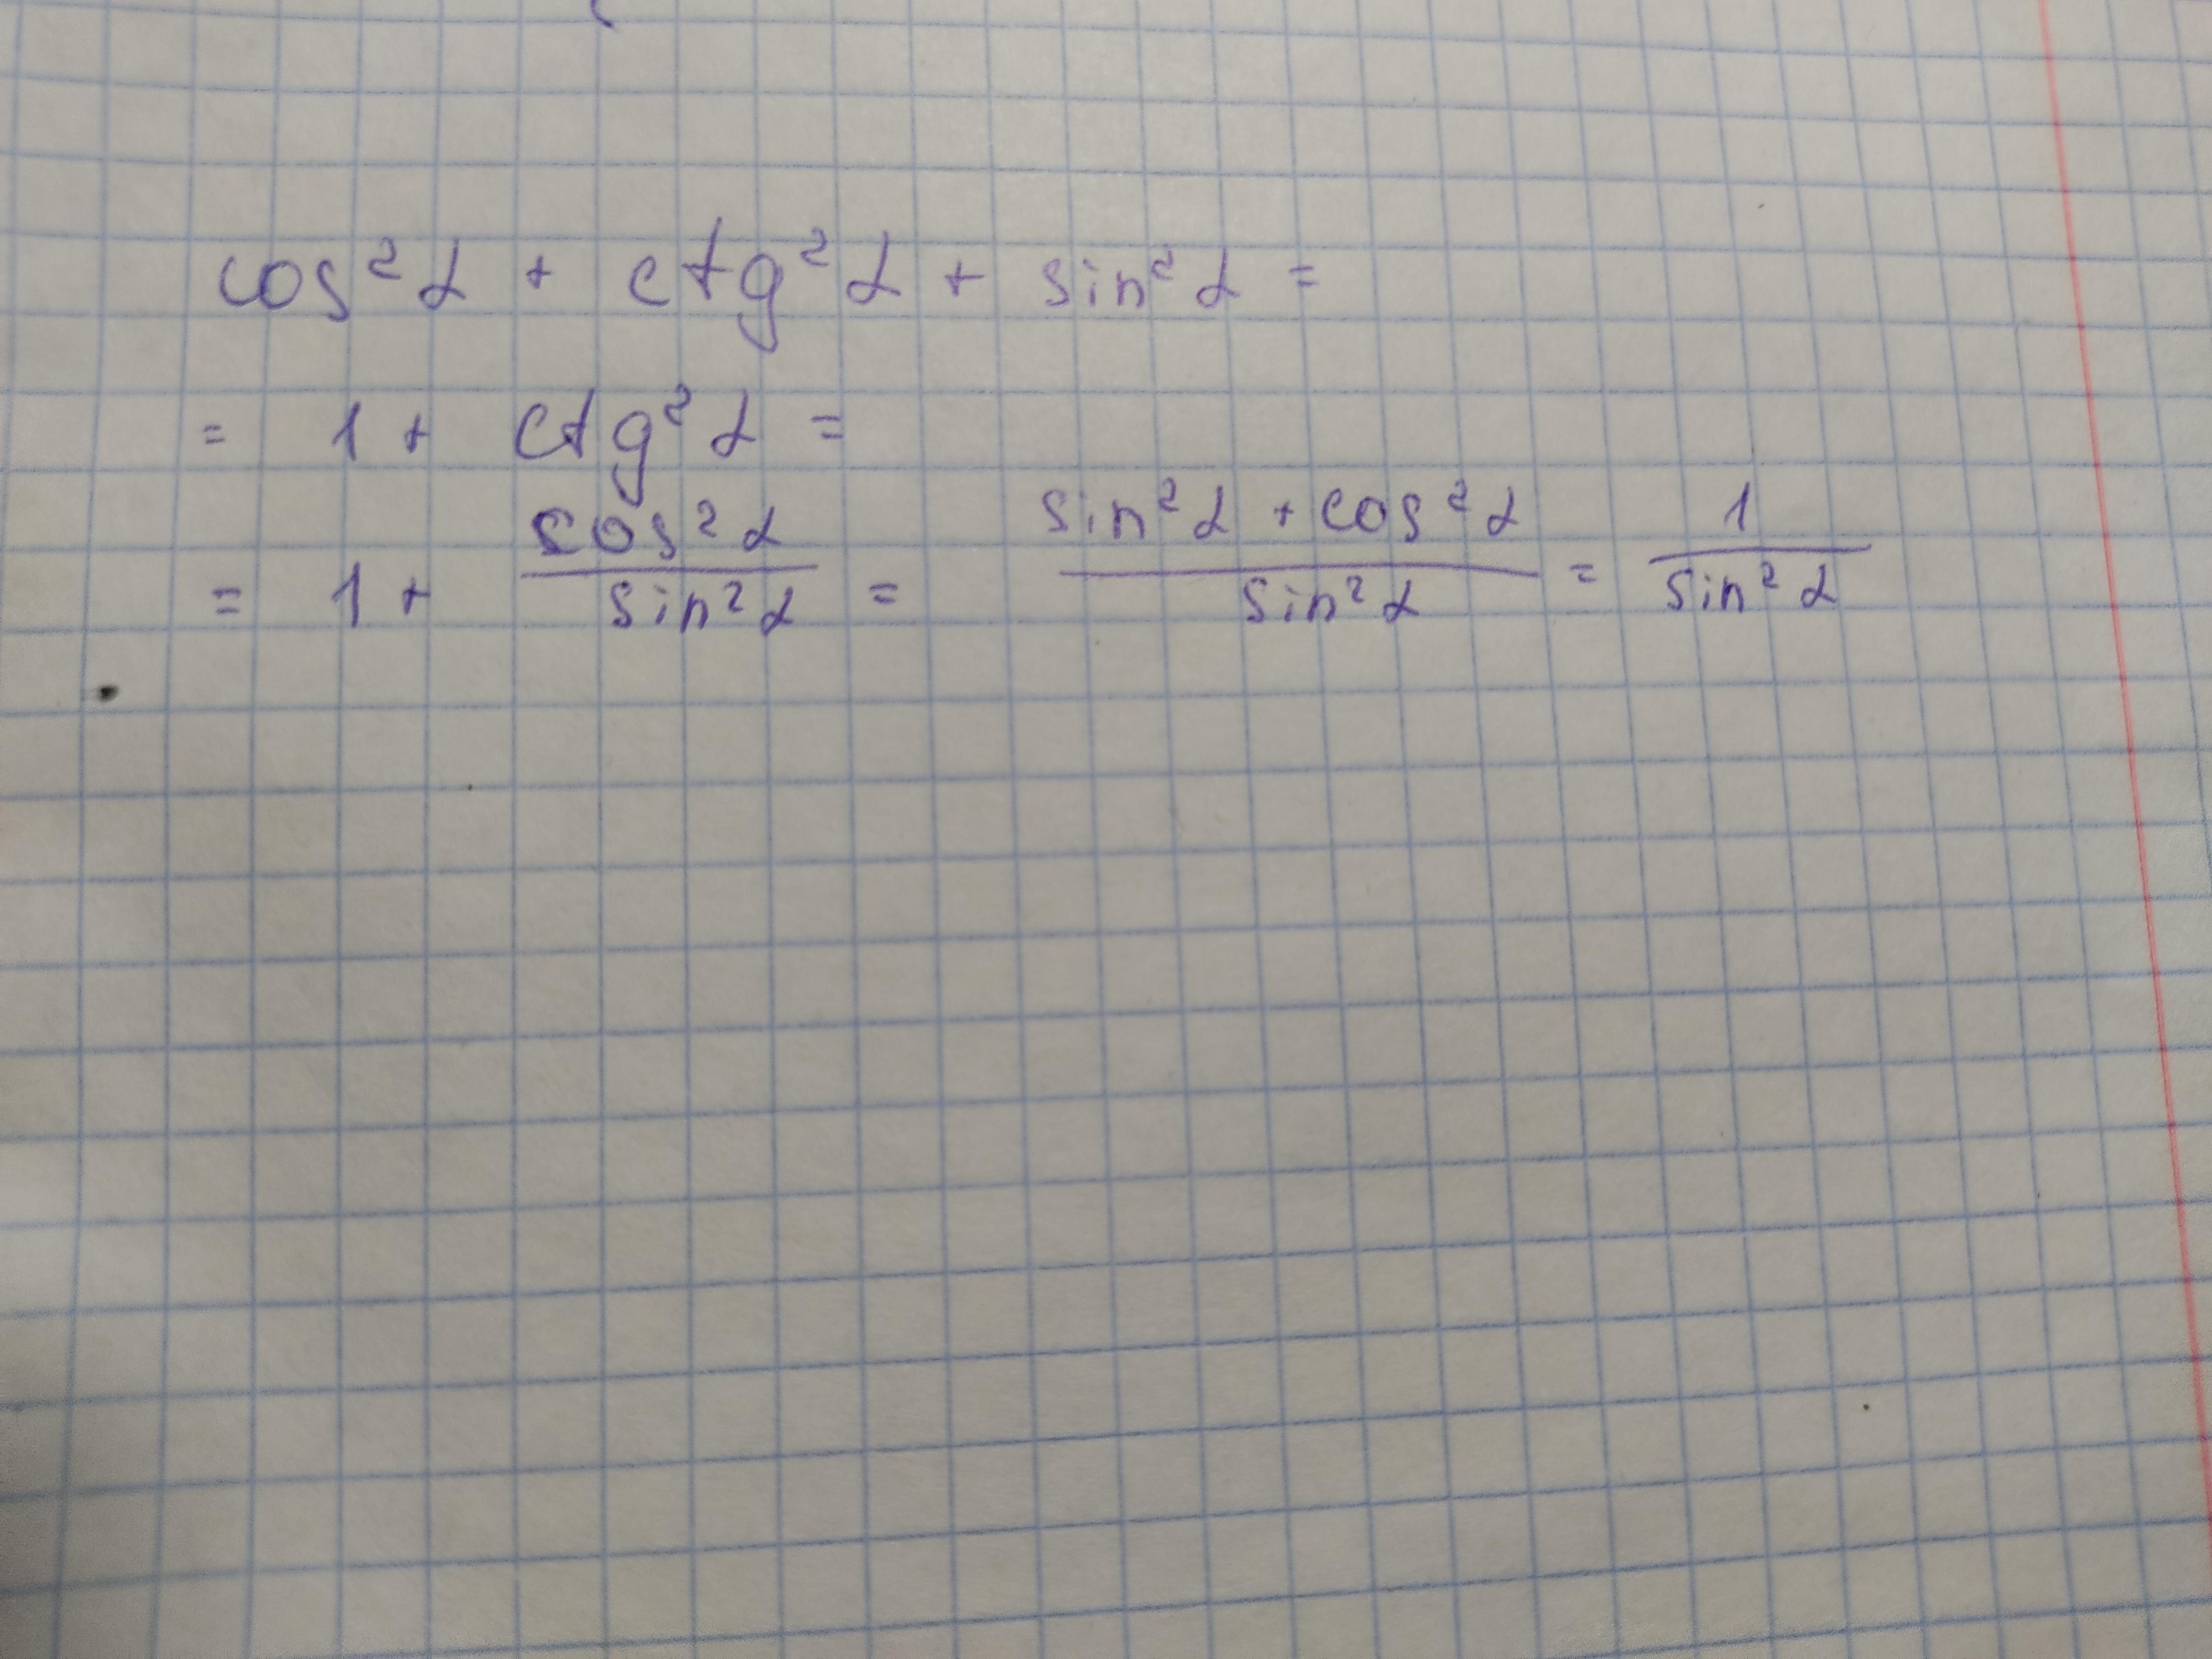 cos²α + ctg²α + sin²α =
= 1 + ctg²α =
= 1 + cos²α/sin²α = (sin²α + cos²α)/sin²α = 1/sin²α